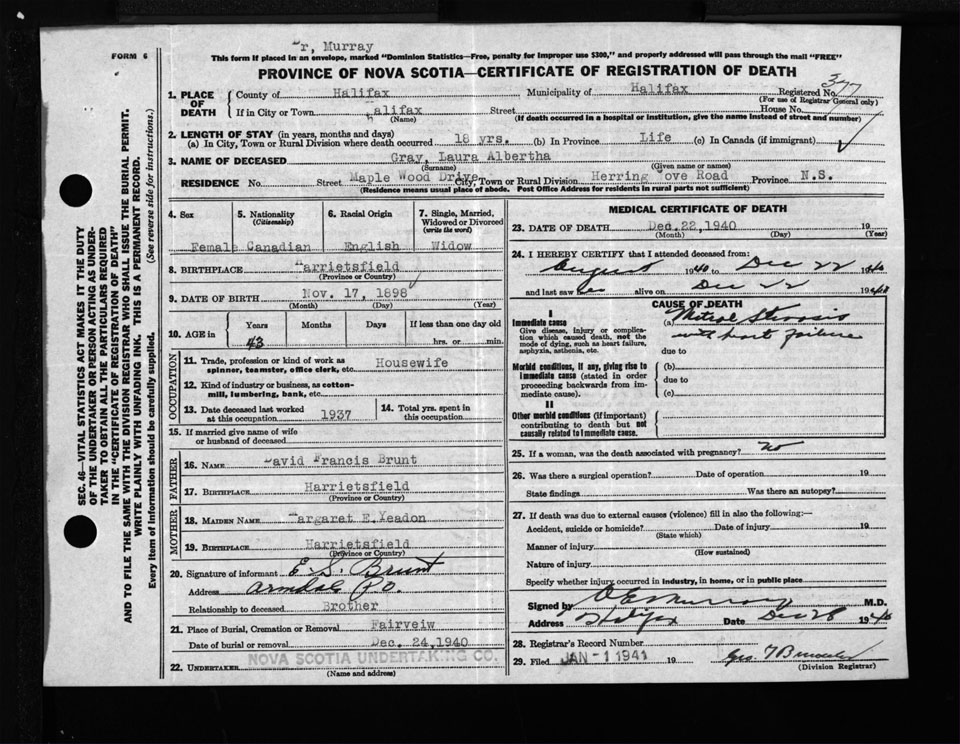 FORM 6
Dr, Murray
This form if placed in an envelope, marked "Dominion Statistics—Free, penalty for improper use $300," and properly addressed will pass through the mail "FREE"
PROVINCE OF NOVA SCOTIA—CERTIFICATE OF REGISTRATION OF DEATH
1. PLACE OF DEATH
County of Halifax Municipality of Halifax Registered No. 377
(For use of Registrar General only)
If in City or Town Halifax Street House No.
(Name) (If death occurred in a hospital or institution, give the name instead of street and number)
2. LENGTH OF STAY (in years, months and days)
(a) In City, Town or Rural Division where death occurred 18 yrs. (b) In Province Life (c) In Canada (if immigrant)
3. NAME OF DECEASED Gray, Laura Albertha
(Surname) (Given name or names)
RESIDENCE No. Street Maple Wood Drive City, Town or Rural Division Herring Cove Road Province N.S.
(Residence means usual place of abode. Post Office Address for residents in rural parts not sufficient)
4. Sex 5. Nationality (Citizenship) 6. Racial Origin 7. Single, Married, Widowed or Divorced (write the word)
Female Canadian English Widow
8. BIRTHPLACE Harrietsfield
(Province or Country)
9. DATE OF BIRTH Nov. 17, 1898
(Month) (Day) (Year)
10. AGE in Years Months Days If less than one day old
43 hrs. or min.
OCCUPATION
11. Trade, profession or kind of work as spinner, teamster, office clerk, etc. Housewife
12. Kind of industry or business, as cotton-mill, lumbering, bank, etc.
13. Date deceased last worked at this occupation 1937 14. Total yrs. spent in this occupation
15. If married give name of wife or husband of deceased
FATHER
16. NAME David Francis Brunt
17. BIRTHPLACE Harrietsfield
(Province or Country)
MOTHER
18. MAIDEN NAME Margaret E. Yeadon
19. BIRTHPLACE Harrietsfield
(Province or Country)
20. Signature of informant E. S. Brunt
Address Armdale P.O.
Relationship to deceased Brother
21. Place of Burial, Cremation or Removal Fairveiw
Date of burial or removal Dec. 24, 1940
22. UNDERTAKER NOVA SCOTIA UNDERTAKING CO.
(Name and address)
MEDICAL CERTIFICATE OF DEATH
23. DATE OF DEATH Dec. 22, 1940 19
(Month) (Day) (Year)
24. I HEREBY CERTIFY that I attended deceased from:
August 1940 to Dec 22 1940
and last saw her alive on Dec 22 1940
CAUSE OF DEATH
I
Immediate cause
Give disease, injury or complication which caused death, not the mode of dying, such as heart failure, asphyxia, asthenia, etc.
(a) Mitral Stenosis
with heart failure
due to
Morbid conditions, if any, giving rise to immediate cause (stated in order proceeding backwards from immediate cause).
(b)
due to
(c)
II
Other morbid conditions (if important) contributing to death but not causally related to immediate cause.
25. If a woman, was the death associated with pregnancy? No
26. Was there a surgical operation? Date of operation 19
State findings Was there an autopsy?
27. If death was due to external causes (violence) fill in also the following:—
Accident, suicide or homicide? Date of injury 19
(State which)
Manner of injury
(How sustained)
Nature of injury
Specify whether injury occurred in industry, in home, or in public place
Signed by M.D.
Address Halifax Date Dec 28 1940
28. Registrar's Record Number
29. Filed JAN -1 1941 19
(Division Registrar)
SEC. 46—VITAL STATISTICS ACT MAKES IT THE DUTY
OF THE UNDERTAKER OR PERSON ACTING AS UNDER-
TAKER TO OBTAIN ALL THE PARTICULARS REQUIRED
IN THE "CERTIFICATE OF REGISTRATION OF DEATH"
AND TO FILE THE SAME WITH THE DIVISION REGISTRAR WHO SHALL ISSUE THE BURIAL PERMIT.
WRITE PLAINLY WITH UNFADING INK. THIS IS A PERMANENT RECORD.
Every item of information should be carefully supplied. (See reverse side for instructions.)